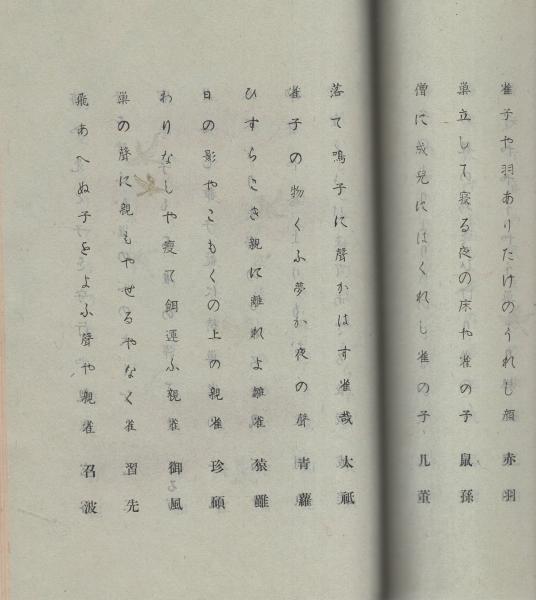 雀子や羽ありたけのうれし顔 赤羽
巣立して寝る夜の床や雀の子 鼠孫
僧に成児にはくれし雀の子 几董
落て鳴子に聲かはす雀哉 太祇
雀子の物くふ夢か夜の聲 青蘿
ひすらこき親に離れよ雛雀 猿雖
日の影やこもくの上の親雀 珍碩
わりなしや痩て餌運ふ親雀 御風
巣の聲に親もやせるやなく雀 習先
飛あへぬ子をよふ聲や親雀 召波